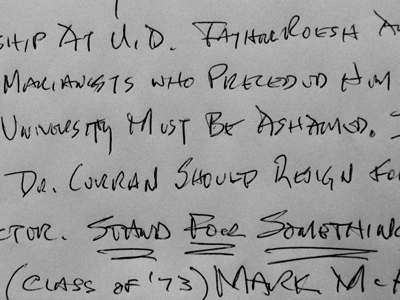 SHIP AT U.D. FATHER ROESH A
MARIANISTS WHO PRECEDED HIM
UNIVERSITY MUST BE ASHAMED. I
DR. CURRAN SHOULD RESIGN FO
CTOR. STAND FOR SOMETHING
(CLASS OF '73) MARK MCA